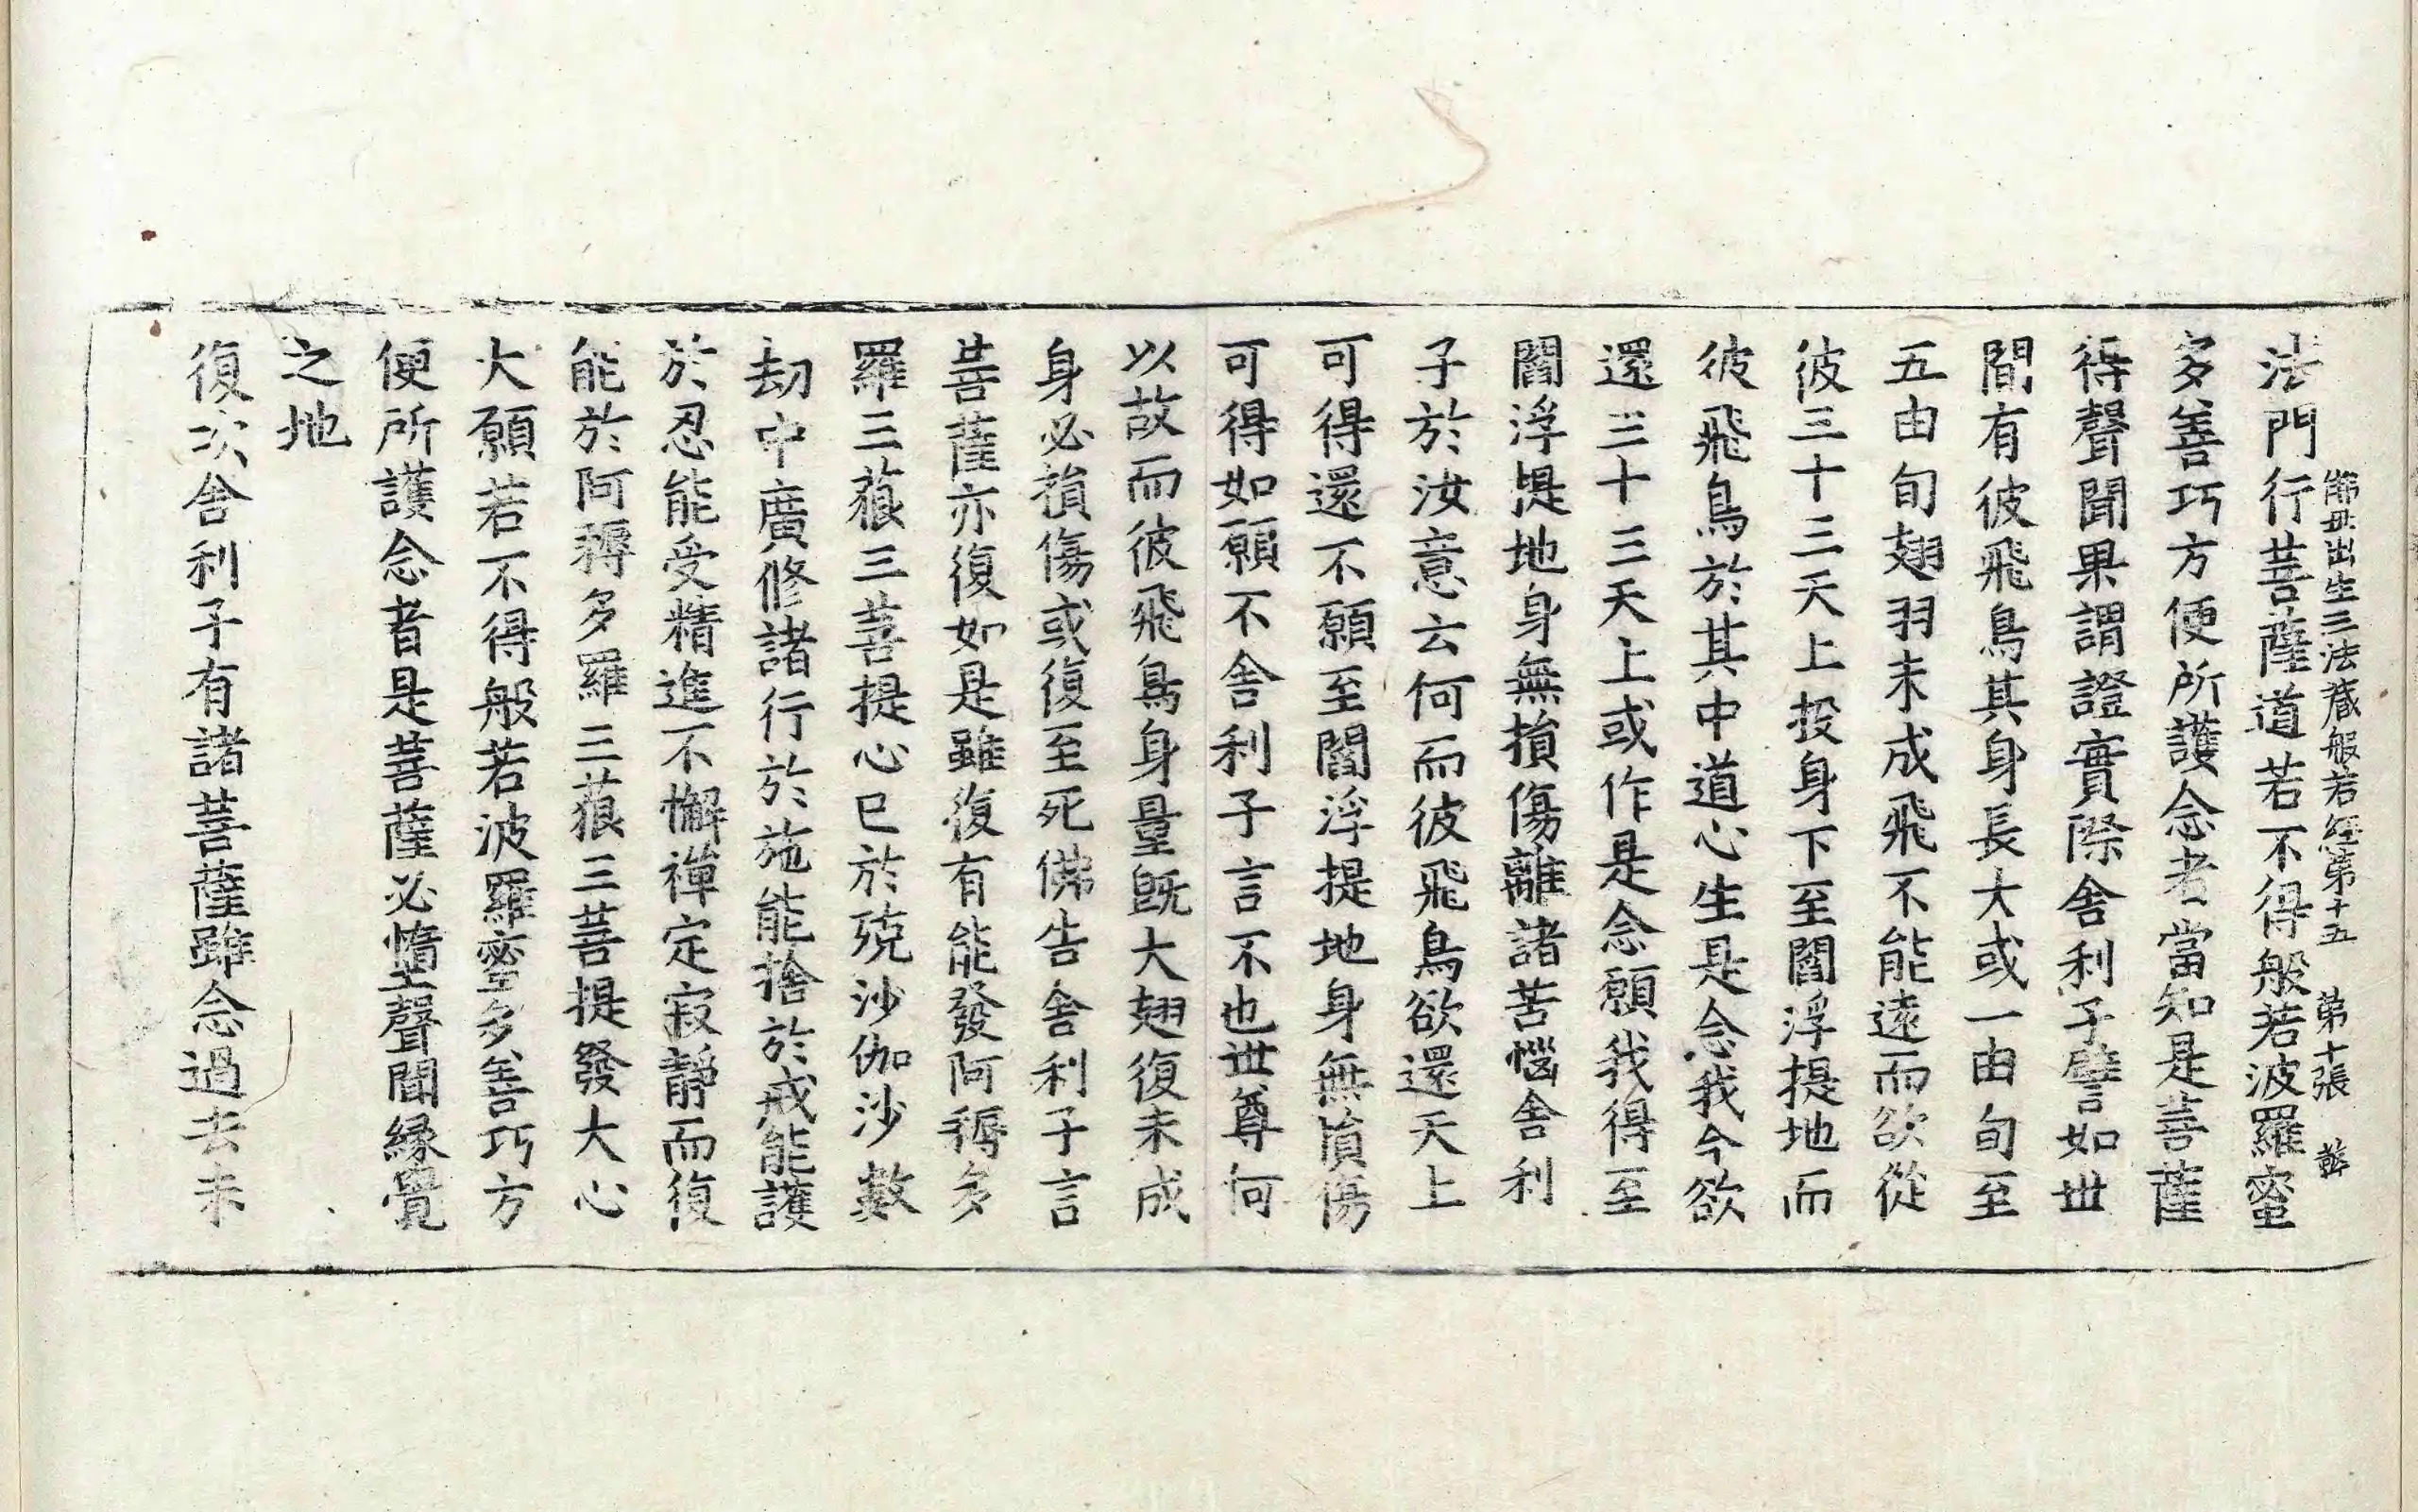 佛母出生三法藏般若經第十五　第十張
法門行菩薩道若不得般若波羅蜜
多善巧方便所護念者當知是菩薩
得聲聞果謂證實際舍利子譬如世
間有彼飛鳥其身長大或一由旬至
五由旬翅羽未成飛不能遠而欲從
彼三十三天上投身下至閻浮提地而
彼飛鳥於其中道心生是念我今欲
還三十三天上或作是念願我得至
閻浮提地身無損傷離諸苦惱舍利
子於汝意云何而彼飛鳥欲還天上
可得還不願至閻浮提地身無損傷
可得如願不舍利子言不也世尊何
以故而彼飛鳥身量旣大翅復未成
身必損傷或復至死佛告舍利子言
菩薩亦復如是雖復有能發阿耨多
羅三藐三菩提心已於殑沙伽沙數
劫中廣修諸行於施能捨於戒能護
於忍能受精進不懈禪定寂靜而復
能於阿耨多羅三藐三菩提發大心
大願若不得般若波羅蜜多善巧方
便所護念者是菩薩必墮聲聞緣覺
之地
復次舍利子有諸菩薩雖念過去未